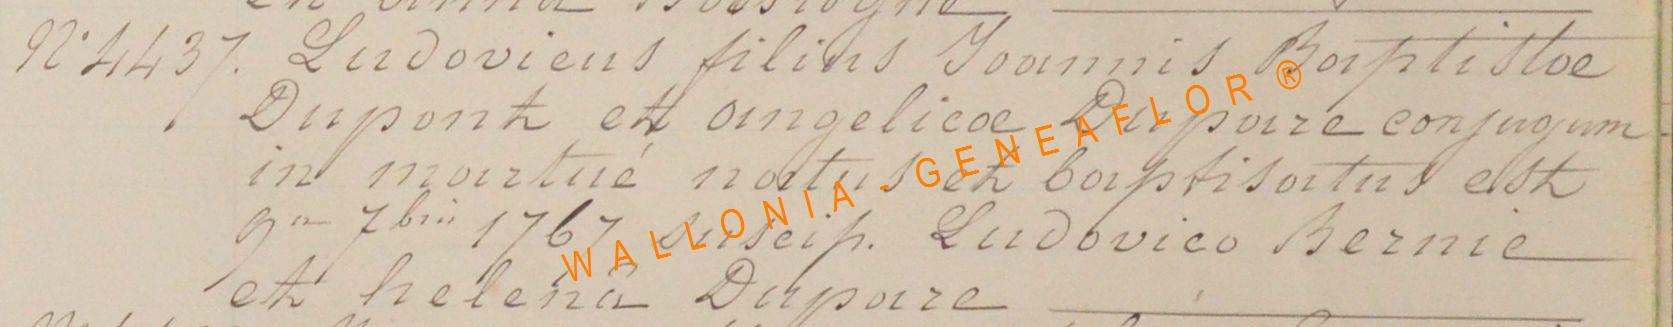 en anna
N° 4437. Ludovicus filius Joannis Baptistoe
Dupont et angelicoe Dupare conjugum
in martué natus et baptisatus est
9ª 7bris 1767 suscip. Ludovico Bernie
et helena Dupare
WALLONIA - GENEAFLOR ®